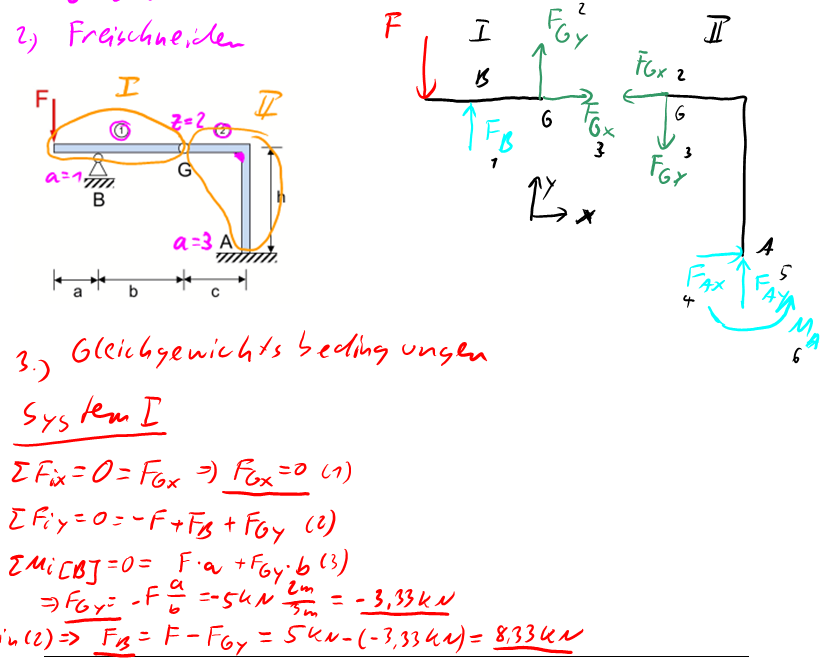 2.) Freischneiden
I
II
F
①
z=2
②
G
a=1
B
h
a=3 A
a b c
F I F_Gy 2
B
G F_Gx 3
F_B 1
y
x
II
F_Gx 2
G
F_Gy 3
A
F_Ax 4
F_Ay 5
M_A 6
3.) Gleichgewichtsbedingungen
System I
ΣFix=0=F_Gx => F_Gx=0 (1)
ΣFiy=0=-F+F_B+F_Gy (2)
ΣMi[B]=0= F·a+F_Gy·b (3)
=> F_Gy= -F a/b = -5kN 2m/3m = -3,33kN
in (2) => F_B = F-F_Gy = 5kN-(-3,33kN)= 8,33kN